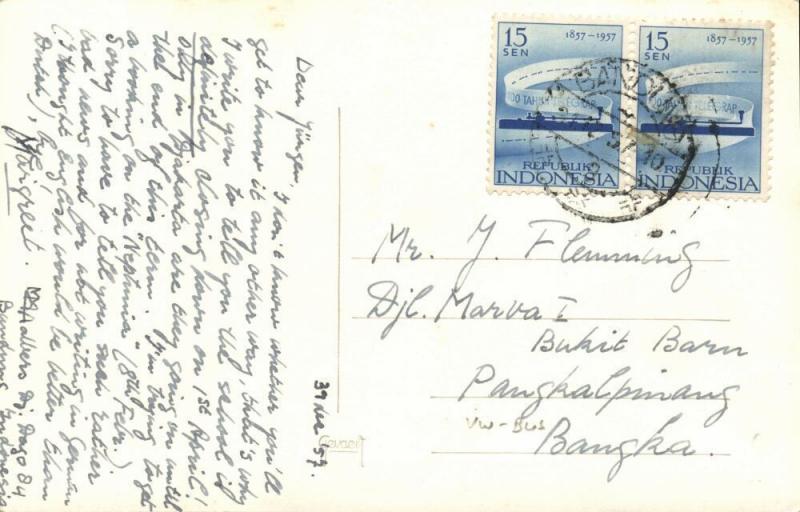 Dear Jürgen, I don't know whether you'll
get to know it any other way, that's why
I write you to tell you the school is
definitely closing down on 1st April!
Only in Djakarta are they going on until
the end of this term. I'm trying to get
a booking on the "Neptunia" (8th Febr.)
Sorry to have to tell you such rather
bad news and for not writing in German
(I thought English would be better than
Dutch),
Dago 84
Bandung Indonesia
39 Dec '57.
Gevaert
15
SEN
1857-1957
100 TAHUN TELEGRAP
REPUBLIK
INDONESIA
15
SEN
1857-1957
100 TAHUN TELEGRAP
REPUBLIK
INDONESIA
BANDUNG
Mr. J. Flemming
Djl. Marva I
Bukit Baru
Pangkalpinang
VW-Bus
Bangka.